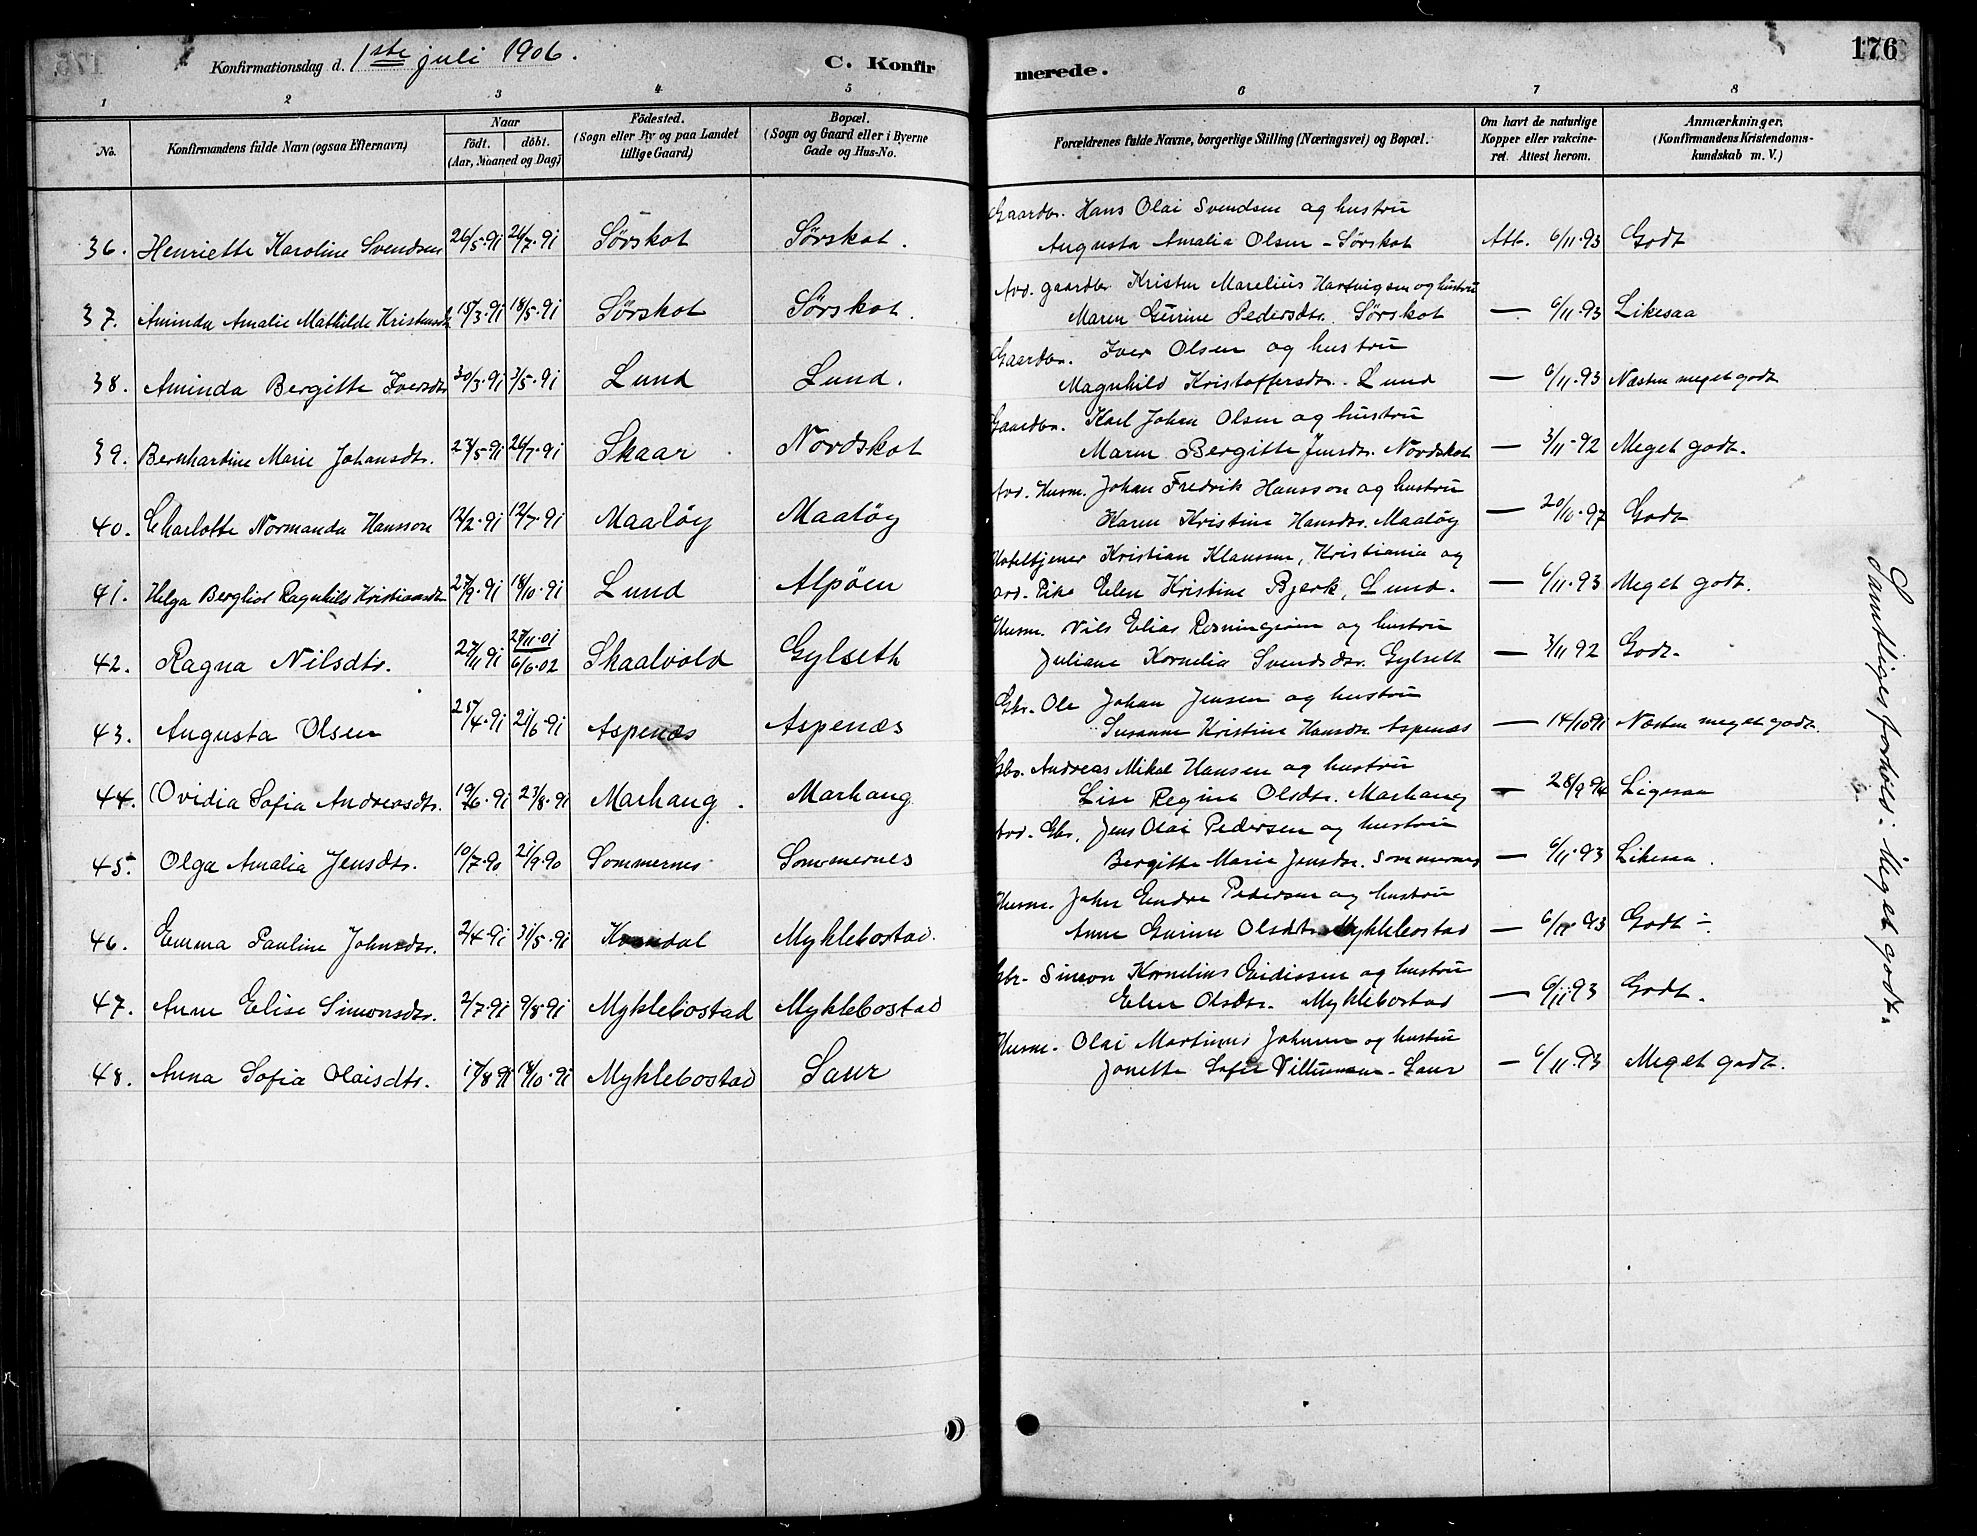 Konfirmationsdag d. 1ste juli 1906.
C. Konfirmerede.
176
1 2 3 4 5 6 7 8
No.
Konfirmandens fulde Navn (ogsaa Efternavn)
Naar
født. døbt.
(Aar, Maaned og Dag)
Födested.
(Sogn eller By og paa Landet
tillige Gaard)
Bopæl.
(Sogn og Gaard eller i Byerne
Gade og Hus-No.
Forældrenes fulde Navne, borgerlige Stilling (Næringsvei) og Bopæl.
Om havt de naturlige
Kopper eller vakcine-
ret. Attest herom.
Anmærkninger.
(Konfirmandens Kristendoms-
kundskab m. V.)
Gaardbr. Hans Olai Svendsen og hustru
36. Henriette Karoline Svendsen 26/5.91 26/7.91 Sørskot Sørskot. Augusta Amalia Olsen - Sørskot Att. 6/11.93 Godt
Avd. gaardbr Kristen Marelius Hartvigsen og hustru
37. Aminda Amalie Mathilde Kristensdtr 15/3.91 18/5.91 Sørskot Sørskot. Maren Gurine Pedersdtr. Sørskot — 6/11.93 Likesaa
Gaardbr. Iver Olsen og hustru
38. Aminda Bergitte Iversdtr 30/3.91 3/5.91 Lund Lund. Magnhild Kristoffersdr. Lund — 6/11.93 Næsten meget godt
Gaardbr. Karl Johan Olsen og hustru
39. Bernhardine Marie Johansdtr. 23/5.91 26/7.91 Skaar Nordskot Maren Bergitte Jensdr. Nordskot — 3/11-92 Meget godt.
Avd. Husm. Johan Fredrik Hansson og hustru
40. Charlotte Normanda Hansson 12/2.91 12/7.91 Maaløy Maaløy Karen Kristine Hansdr. Maaløy — 20/10.97 Godt
Hoteltjener Kristian Klaussen, Kristiania og
41. Helga Bergliot Ragnhild Kristiansdtr 27/9.91 18/10.91 Lund Alpøen avd. Pike Elen Kristine Bjerk, Lund. — 6/11.93 Meget godt.
Husm. Nils Elias og hustru
42. Ragna Nilsdtr. 27/11 91 27/11.01 6/6.02 Skaalvold Gylseth Juliane Kornelia Svendsdr. Gylseth — 3/11 92 Godt.
Gbr. Ole Johan Jensen og hustru
43. Augusta Olsen 25/4.91 21/6.91 Aspenæs Aspenæs Susanne Kristine Hansdr. Aspenæs — 14/10 91 Næsten meget godt.
Gbr. Andreas Mikal Hansen og hustru
44. Ovidia Sofia Andreasdtr. 19/6.91 23/8.91 Marhaug. Marhaug Lise Regine Olsdtr. Marhaug — 28/9 94 Ligesaa
Avd. Gbr. Jens Olai Pedersen og hustru
45. Olga Amalia Jensdtr. 10/7.90 21/9.90 Sommernes Sommernes Bergitte Marie Jensdr. Sommernes — 6/11.93 Likesaa.
Husm. John Endre Pedersen og hustru
46. Emma Pauline Johnsdr. 2/4.91 31/5.91 Myklebostad. Anne Gurine Olsdtr. Myklebostad — 6/11 93 Godt ÷
Gbr. Simeon Kornelius Eidissen og hustru
47. Anne Elise Simonsdr. 2/7.91 9/8.91 Myklebostad Myklebostad Elen Olsdtr. Myklebostad — 6/11 93 Godt.
Husm. Olai Martinus Johnsen og hustru
48. Anna Sofia Olaisdtr. 17/8 91 18/10.91 Myklebostad Saur Jonette Sofie Villumsen - Saur — 6/11.93 Meget godt.
Samtliges forhold: Meget godt.